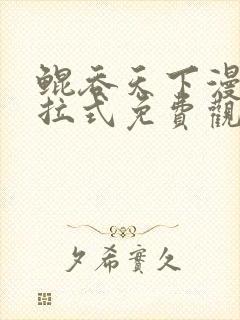 鲲吞天下漫
拉式免費觀
夕希實久